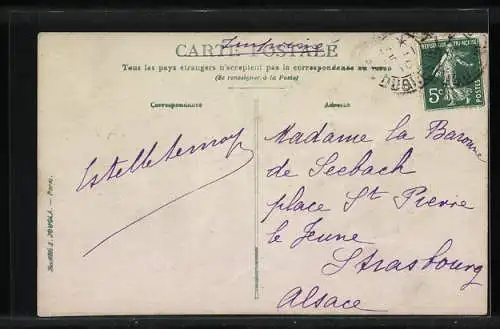 Imprimé
CARTE POSTALE
Tous les pays étrangers n'acceptent pas la correspondance au verso
(Se renseigner à la Poste)
Correspondance
Adresse
REPUBLIQUE FRANÇAISE
5c
POSTES
Madame la Baronne
de Seebach
place St Pierre
le Jeune
Strasbourg
Alsace